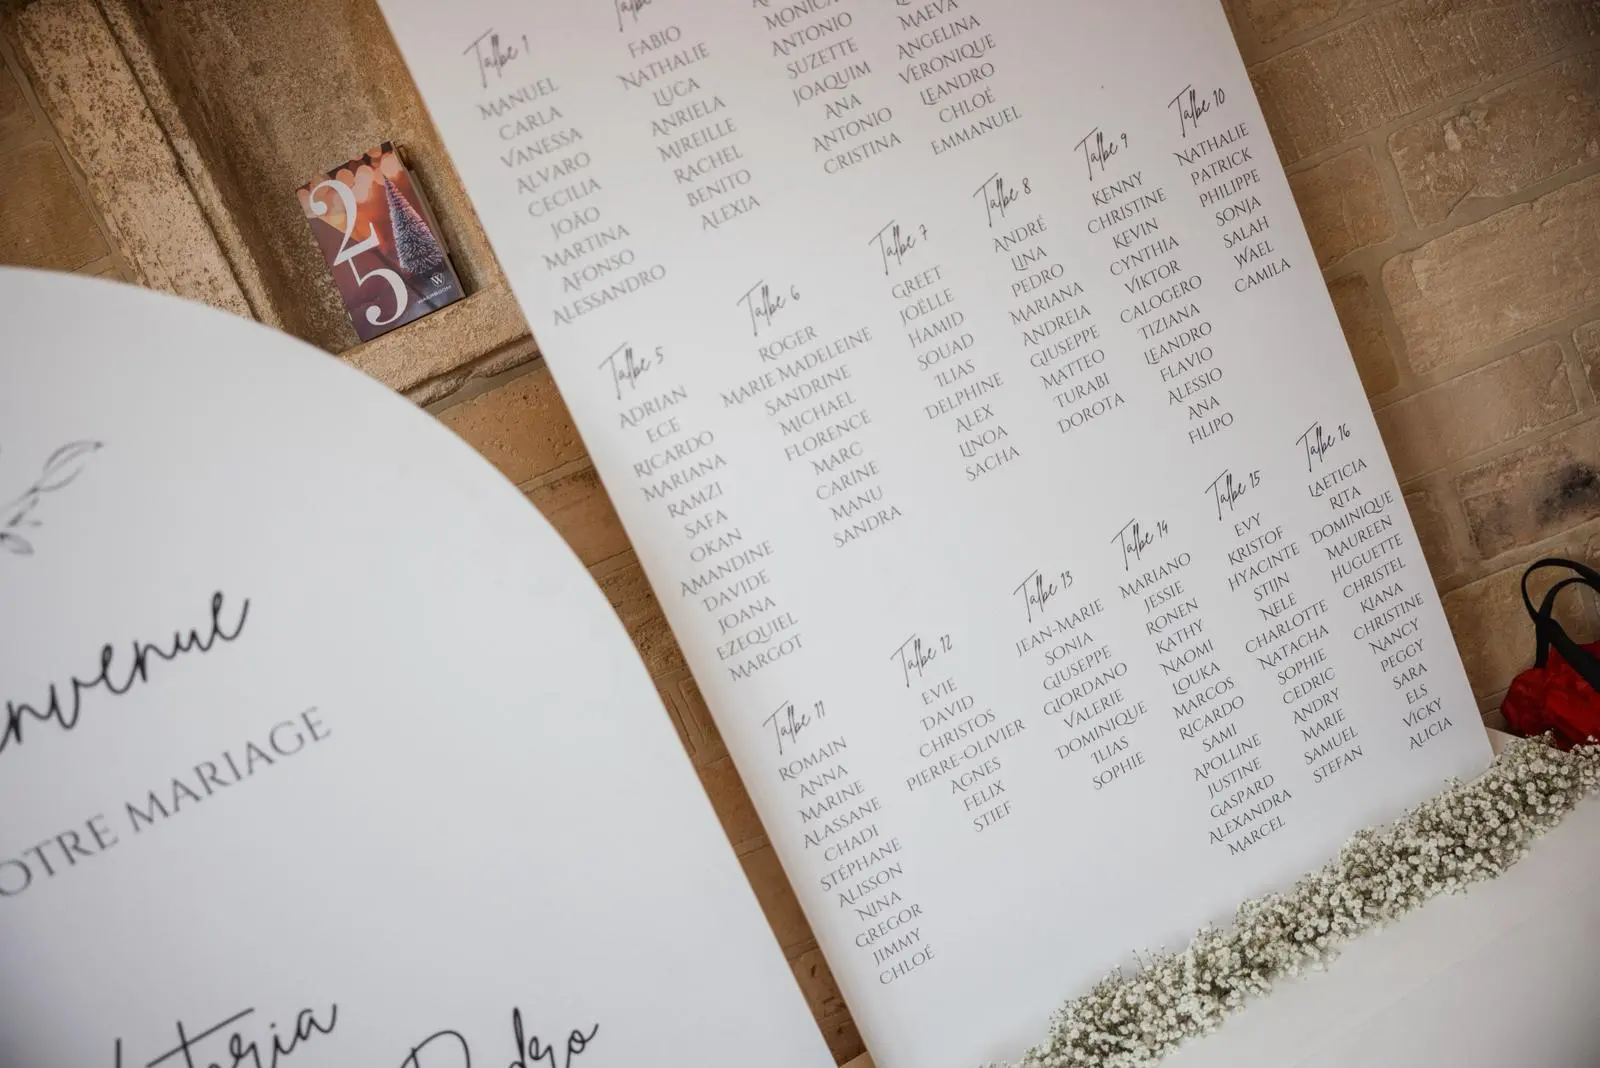 Talbe 1
MANUEL
CARLA
VANESSA
ALVARO
CECILIA
JOÃO
MARTINA
AFONSO
ALESSANDRO
FABIO
NATHALIE
LUCA
ANRIELA
MIREILLE
RACHEL
BENITO
ALEXIA
MONICA
ANTONIO
SUZETTE
JOAQUIM
ANA
ANTONIO
CRISTINA
MAEVA
ANGELINA
VERONIQUE
LEANDRO
CHLOÉ
EMMANUEL
Talbe 5
ADRIAN
ECE
RICARDO
MARIANA
RAMZI
SAFA
OKAN
AMANDINE
DAVIDE
JOANA
EZEQUIEL
MARGOT
Talbe 6
ROGER
MARIE MADELEINE
SANDRINE
MICHAEL
FLORENCE
MARC
CARINE
MANU
SANDRA
Talbe 7
GREET
JOËLLE
HAMID
SOUAD
ILIAS
DELPHINE
ALEX
LINOA
SACHA
Talbe 8
ANDRÉ
LINA
PEDRO
MARIANA
ANDREIA
GIUSEPPE
MATTEO
TURABI
DOROTA
Talbe 9
KENNY
CHRISTINE
KEVIN
CYNTHIA
VIKTOR
CALOGERO
TIZIANA
LEANDRO
FLAVIO
ALESSIO
ANA
FILIPO
Talbe 10
NATHALIE
PATRICK
PHILIPPE
SONJA
SALAH
WAEL
CAMILA
Talbe 11
ROMAIN
ANNA
MARINE
ALASSANE
CHADI
STÉPHANE
ALISSON
NINA
GREGOR
JIMMY
CHLOÉ
Talbe 12
EVIE
DAVID
CHRISTOS
PIERRE-OLIVIER
AGNES
FELIX
STIEF
Talbe 13
JEAN-MARIE
SONIA
GIUSEPPE
GIORDANO
VALERIE
DOMINIQUE
ILIAS
SOPHIE
Talbe 14
MARIANO
JESSIE
RONEN
KATHY
NAOMI
LOUKA
MARCOS
RICARDO
SAMI
APOLLINE
JUSTINE
GASPARD
ALEXANDRA
MARCEL
Talbe 15
EVY
KRISTOF
HYACINTE
STIJN
NELE
CHARLOTTE
NATACHA
SOPHIE
CEDRIC
ANDRY
MARIE
SAMUEL
STEFAN
Talbe 16
LAETICIA
RITA
DOMINIQUE
MAUREEN
HUGUETTE
CHRISTEL
KIANA
CHRISTINE
NANCY
PEGGY
SARA
ELS
VICKY
ALICIA
25
W
envenue
OTRE MARIAGE
Pedro